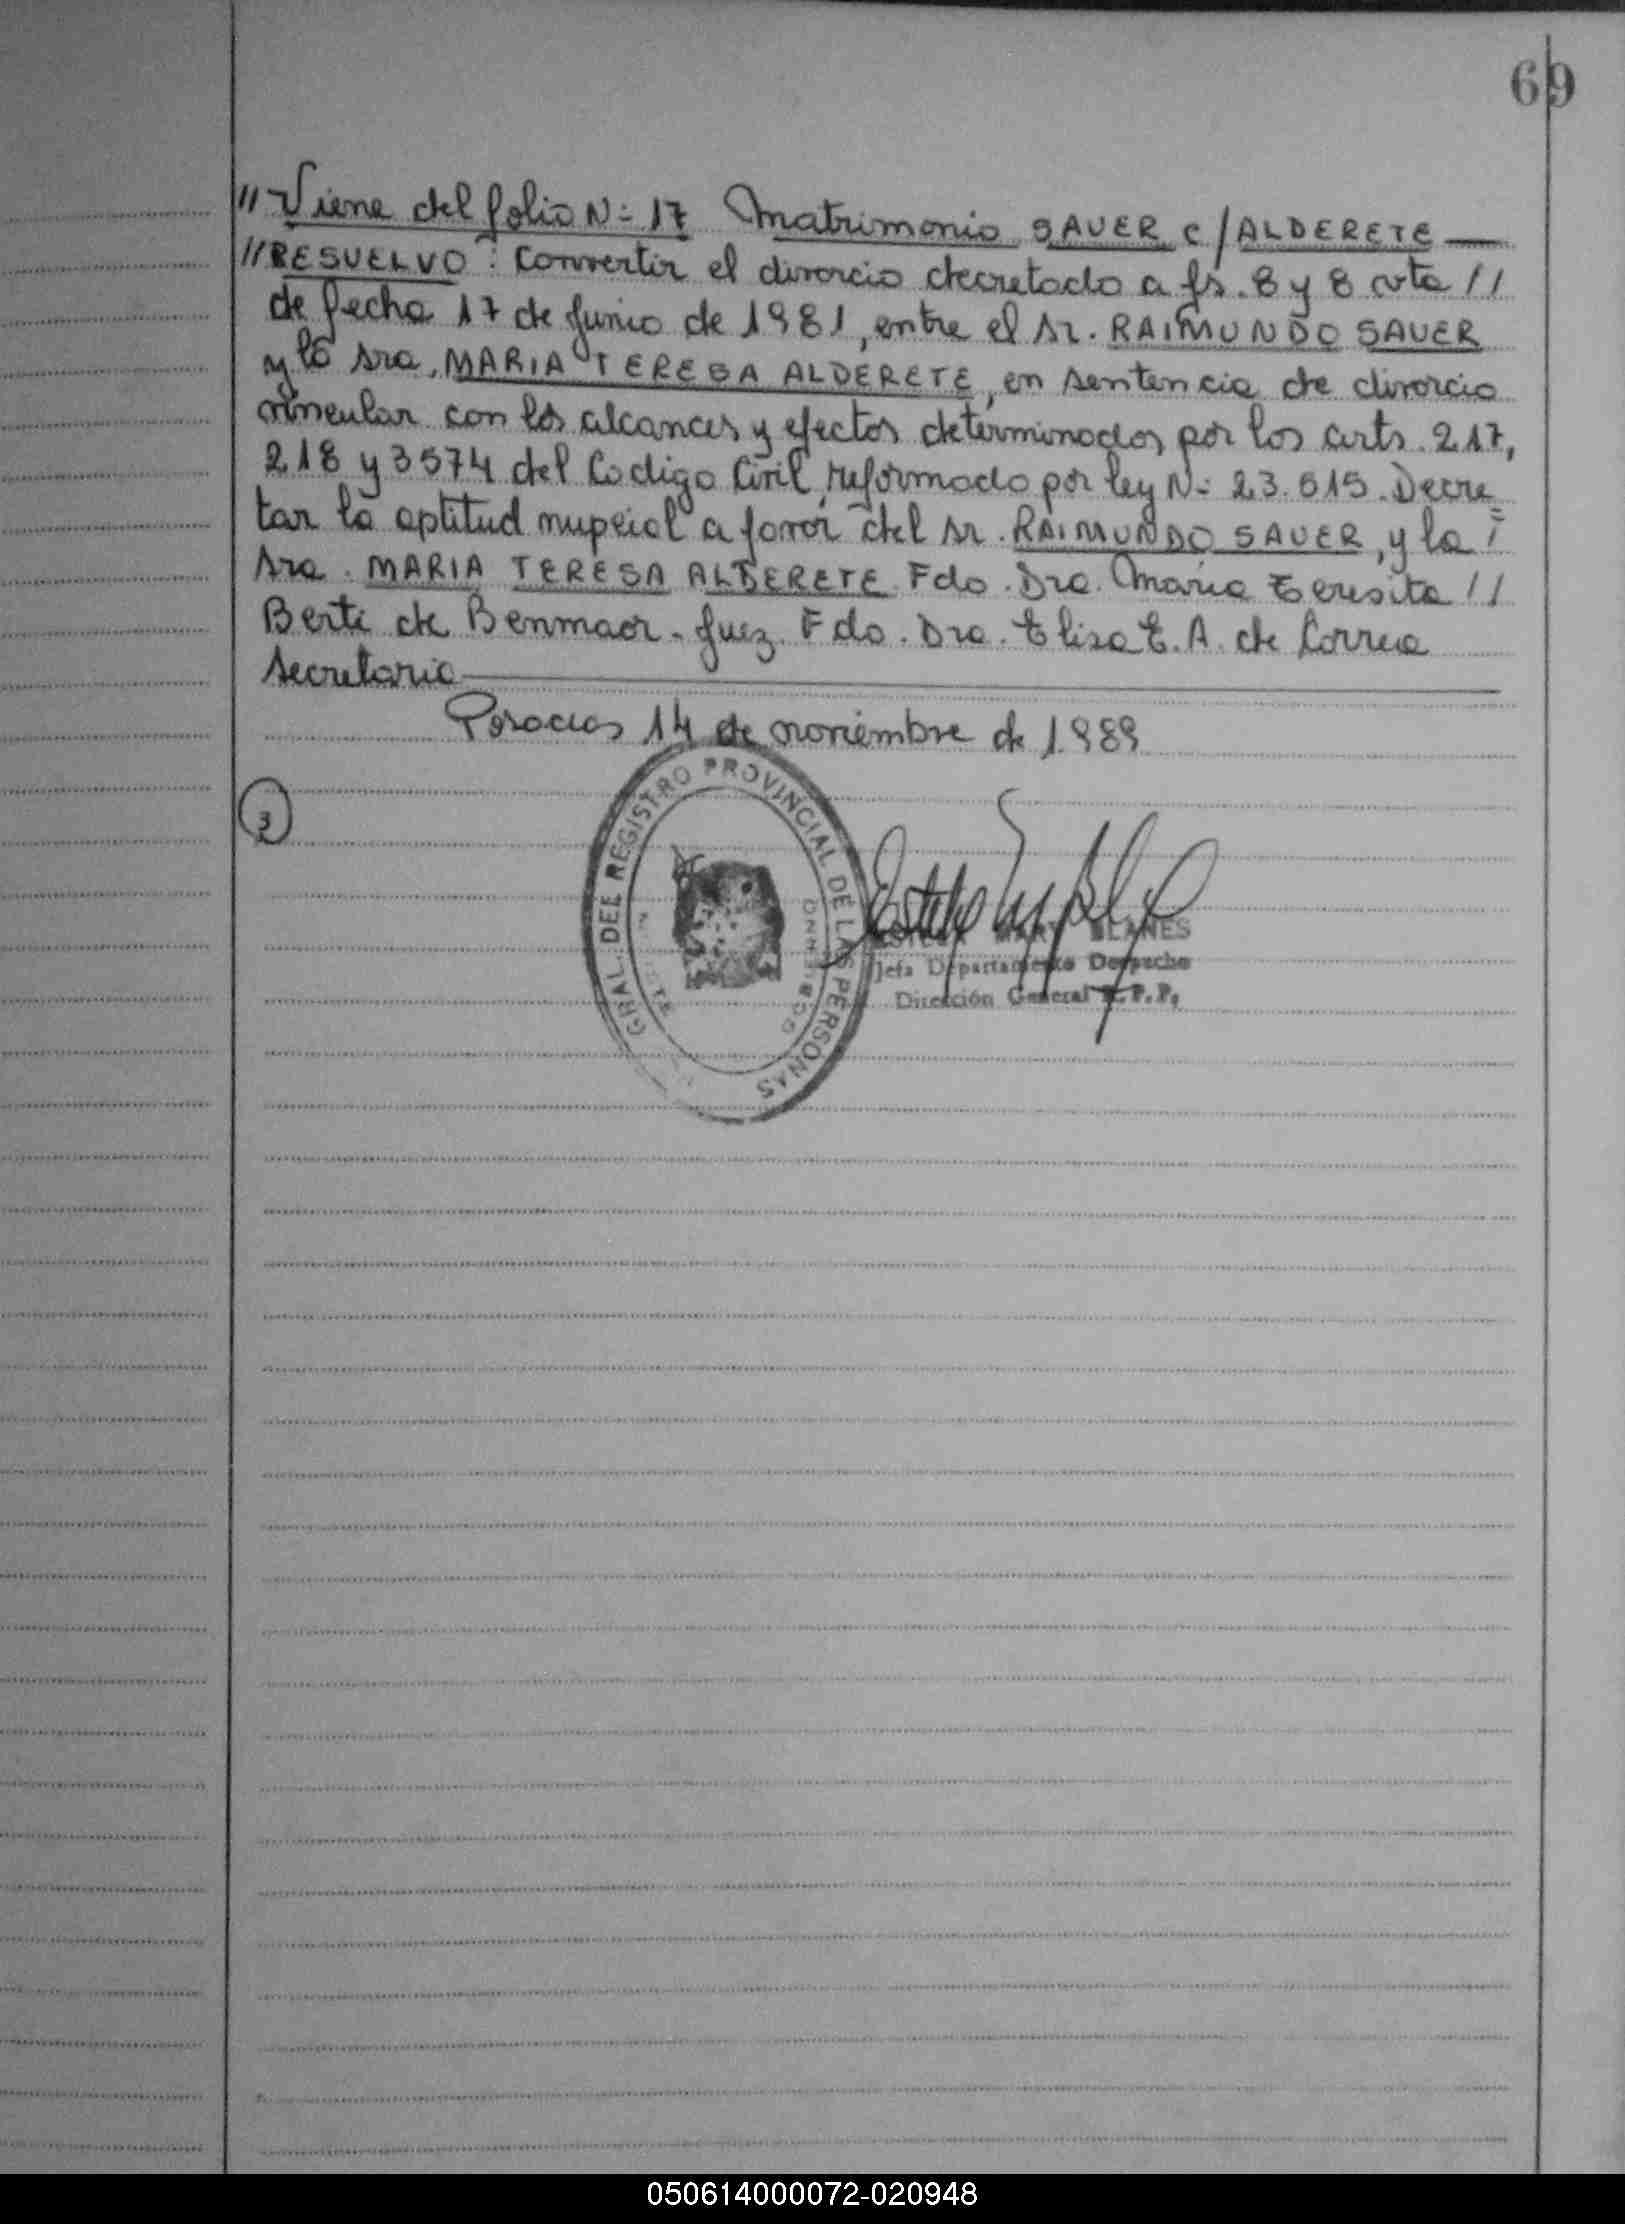 69
"Viene del folio N= 17 Matrimonio SAUER c/ALDERETE
//RESUELVO: Convertir el divorcio decretado a fs. 8 y 8 vta //
de fecha 17 de Junio de 1981, entre el Sr. RAIMUNDO SAUER
y la Sra. MARIA TERESA ALDERETE, en sentencia de divorcio
vincular con los alcances y efectos determinados por los arts. 217,
218 y 3574 del Codigo Civil, reformado por ley N= 23.515. Decre=
tar la aptitud nupcial a favor del Sr. RAIMUNDO SAUER, y la
Sra. MARIA TERESA ALDERETE Fdo. Dra. Maria Teresita //
Berti de Benmaor. Juez. Fdo. Dra. Elisa E. A. de Correa
Secretaria
Posadas 14 de noviembre de 1989
3
GRAL. DEL REGISTRO PROVINCIAL DE LAS PERSONAS
MARY BLANES
Jefa Departamento Despacho
Dirección General R.P.P.
050614000072-020948